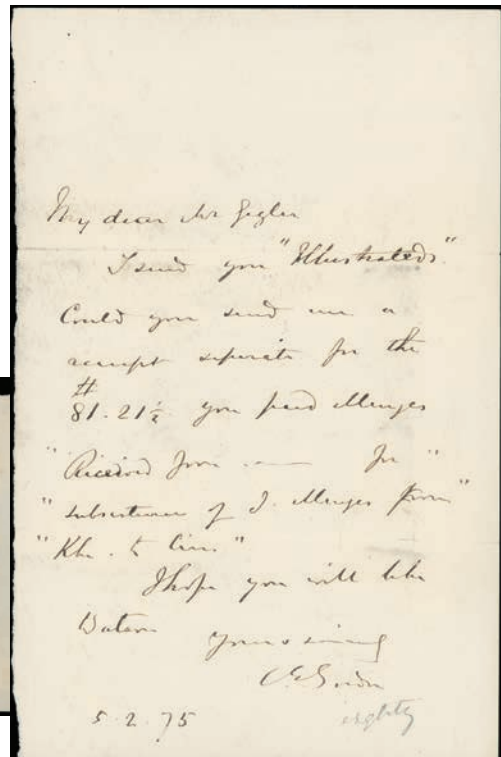 My dear Mr Gegler
I send you "Illustrateds".
Could you send me a
receipt separate for the
#
81.21½ you paid Menges
"Received from —— for"
"subsistence of J. Menges from"
"Kha. to Cairo"
I hope you will like
Watson
Yours sincerely
C E Gordon
5.2.75
eighty